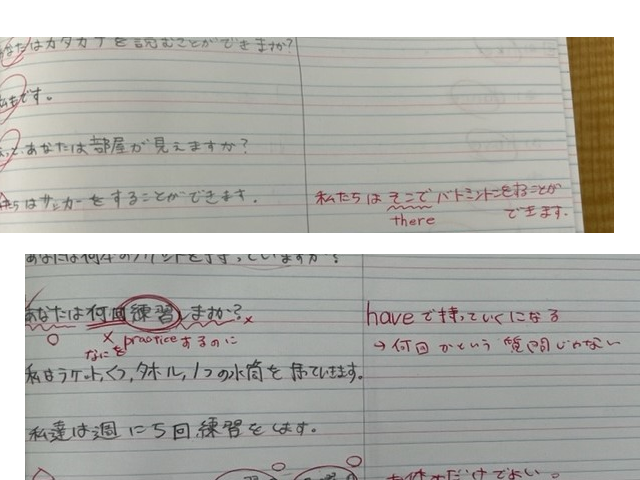 あなたはカタカナを読むことができますか?
私もです。
あなたは部屋が見えますか?
たちはサッカーをすることができます。
私たちはそこでバドミントンをすることが
できます。
there
あなたは何回練習しますか?
practiceするのに
なにを
haveで持っていくになる
→何回かという質問じゃない
私はラケット、くつ、タオル、1つの水筒を持っていきます。
私達は週に5回練習をします。
だけでよい。